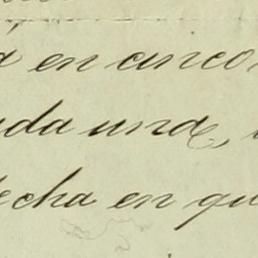 á en cinco
ada una,
fecha en qu